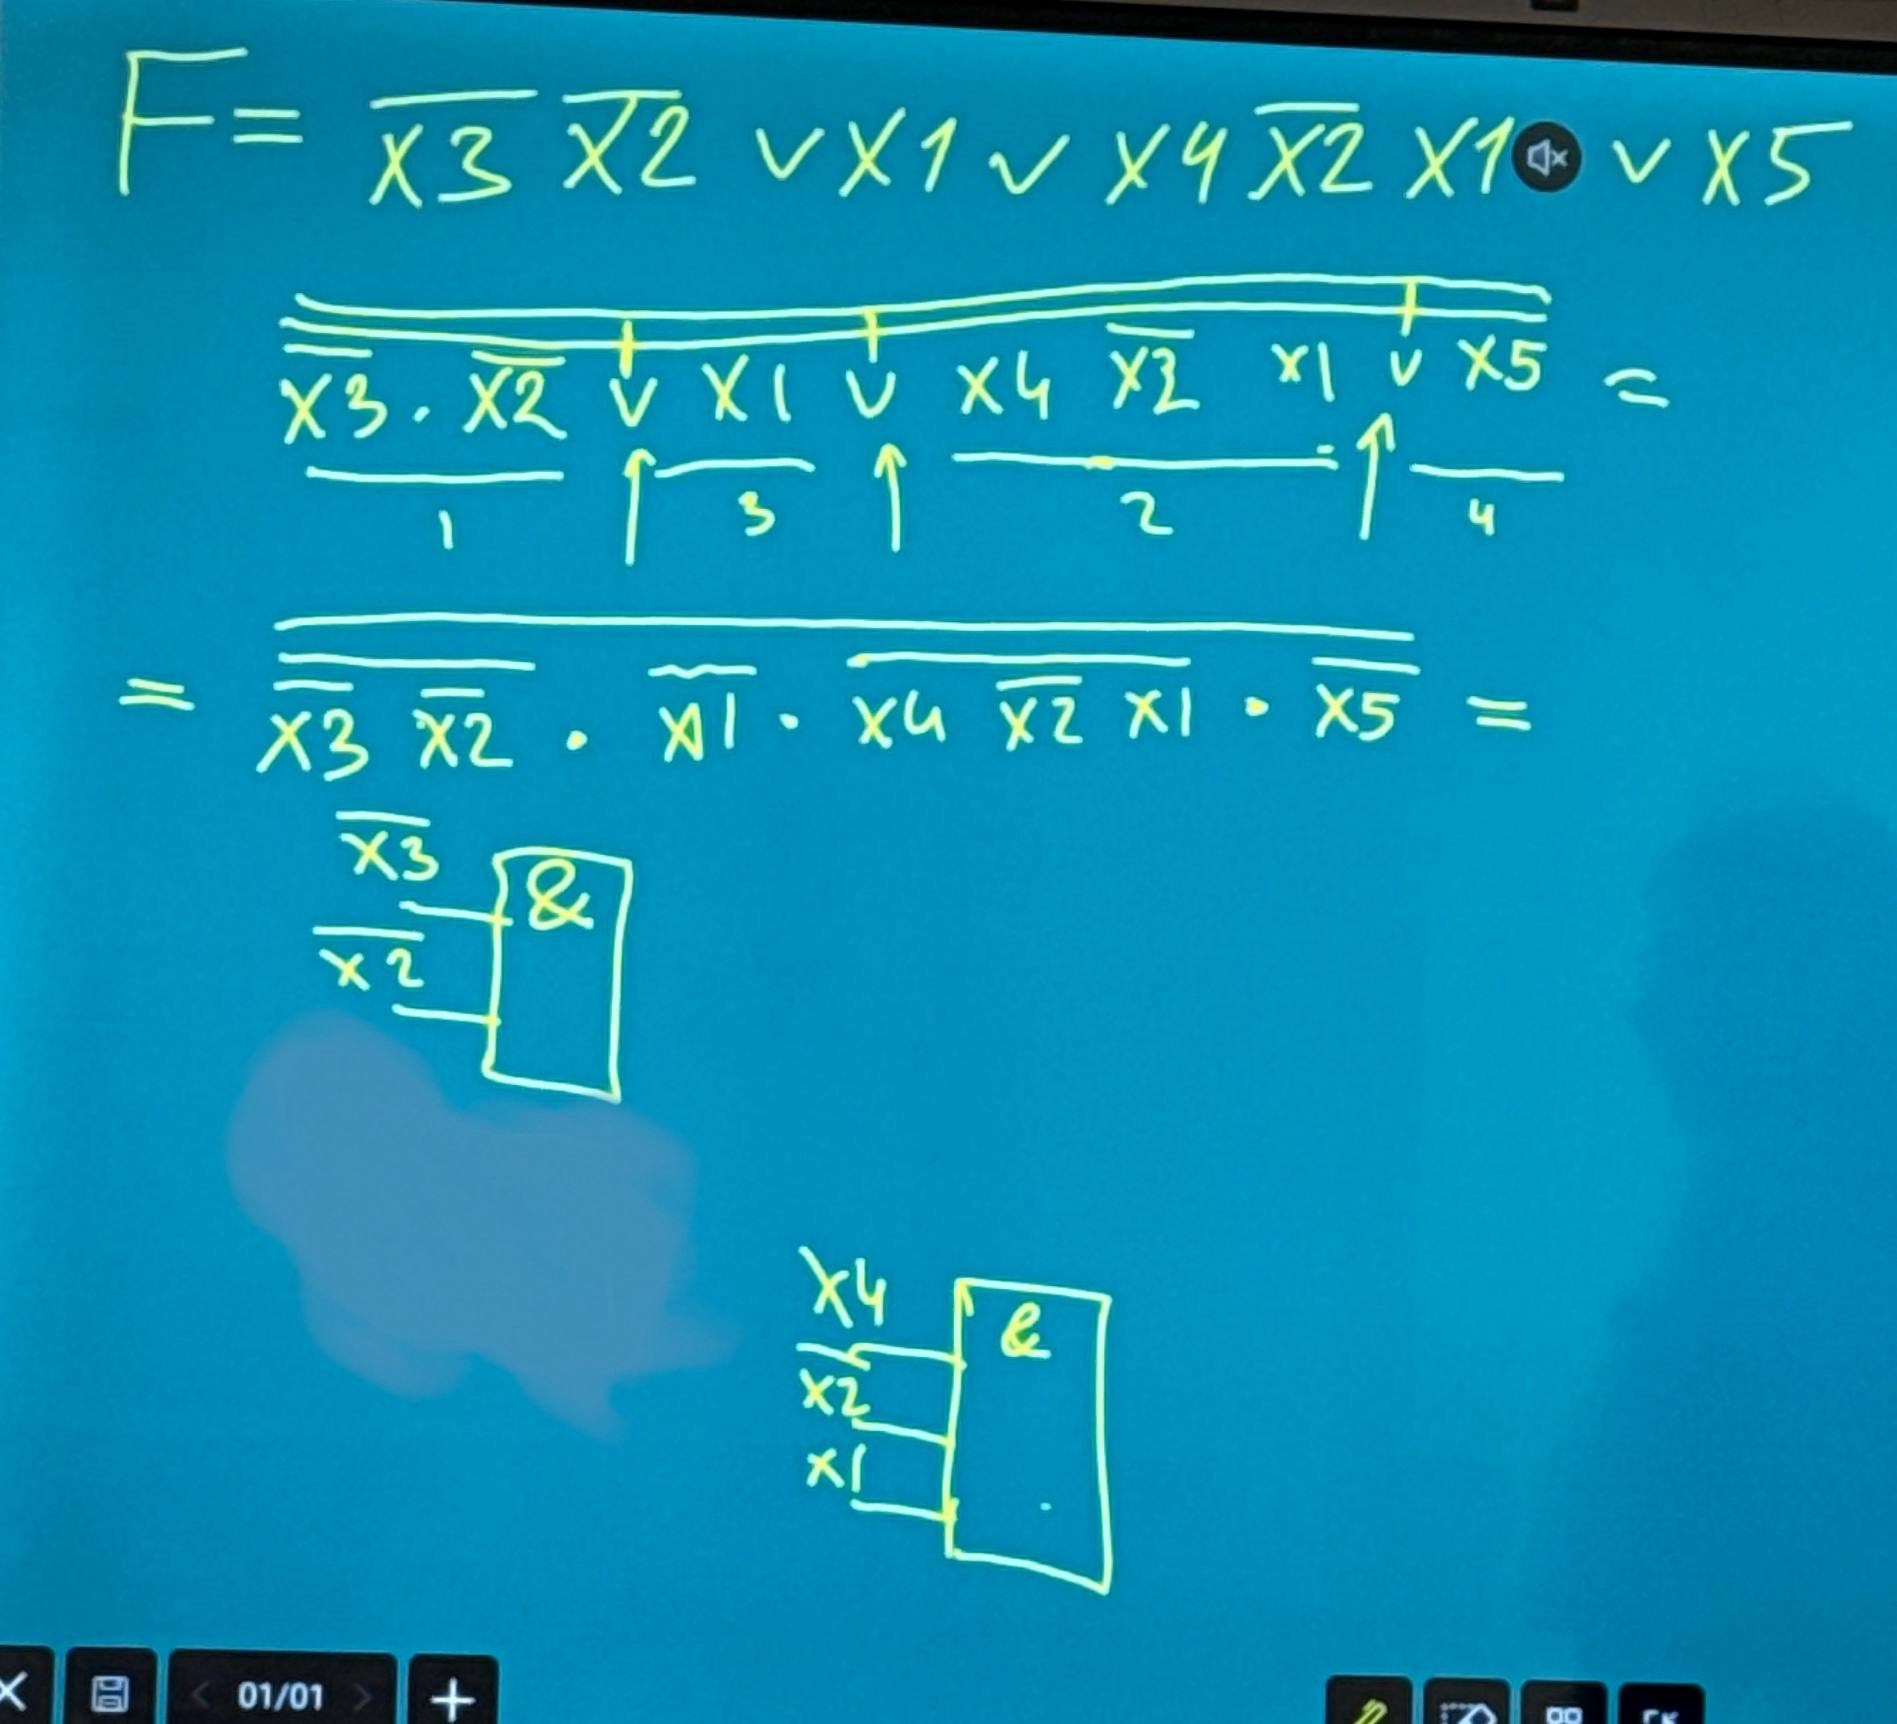 F = x̅3̅ x̅2̅ ∨ x1 ∨ x4 x̅2̅ x1 ∨ x5
x̅3̅ · x̅2̅ ∨ x1 ∨ x4 x̅2̅ x1 ∨ x5 =
1 3 2 4
= x̅3̅ x̅2̅ · x̅1̅ · x4 x̅2̅ x1 · x̅5̅ =
x̅3̅ &
x̅2̅
x4 &
x̅2̅
x1
01/01